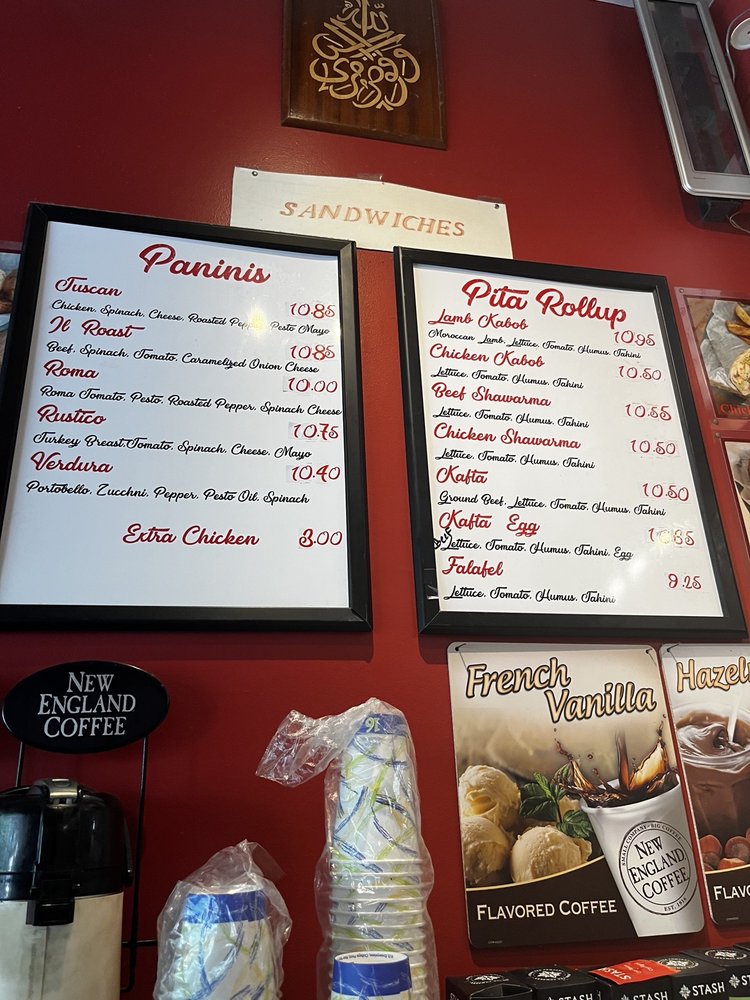 SANDWICHES
Paninis
Tuscan
10.85
Chicken, Spinach, Cheese, Roasted Pepper, Pesto Mayo
Il Roast
10.85
Beef, Spinach, Tomato, Caramelized Onion Cheese
Roma
10.00
Roma Tomato, Pesto, Roasted Pepper, Spinach Cheese
Rustico
10.75
Turkey Breast, Tomato, Spinach, Cheese, Mayo
Verdura
10.40
Portobello, Zucchni, Pepper, Pesto Oil, Spinach
Extra Chicken 3.00
Pita Rollup
Lamb Kabob
10.95
Moroccan Lamb, Lettuce, Tomato, Humus, Tahini
Chicken Kabob
10.50
Lettuce, Tomato, Humus, Tahini
Beef Shawarma
10.55
Lettuce, Tomato, Humus, Tahini
Chicken Shawarma
10.50
Lettuce, Tomato, Humus, Tahini
Kafta
10.50
Ground Beef, Lettuce, Tomato, Humus, Tahini
Kafta Egg
Beef Lettuce, Tomato, Humus, Tahini, Egg
Falafel
9.25
Lettuce, Tomato, Humus, Tahini
NEW
ENGLAND
COFFEE
16
French
Vanilla
SMALL COMPANY - BIG COFFEE
NEW
ENGLAND
COFFEE
EST. 1916
FLAVORED COFFEE
Hazel
FLAV
STASH
STASH
STASH
STASH